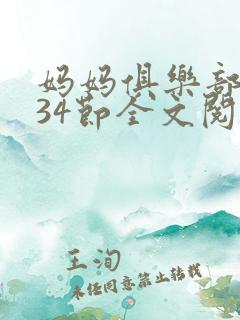 妈妈俱樂部
34節全文閱
王洵
未经同意禁止转载